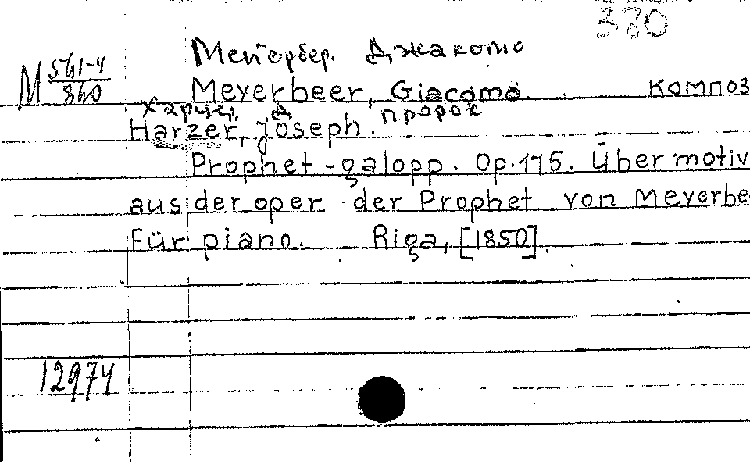 380
Мейербер. Джакомо
М 561-4/860
Meyerbeer, Giacomo композ
Харцер, Д. Пророк
Harzer, Joseph.
Prophet-galopp. Op. 175. Über motiv
aus der oper der Prophet von Meyerbe
für piano. Riga, [1850].
12974